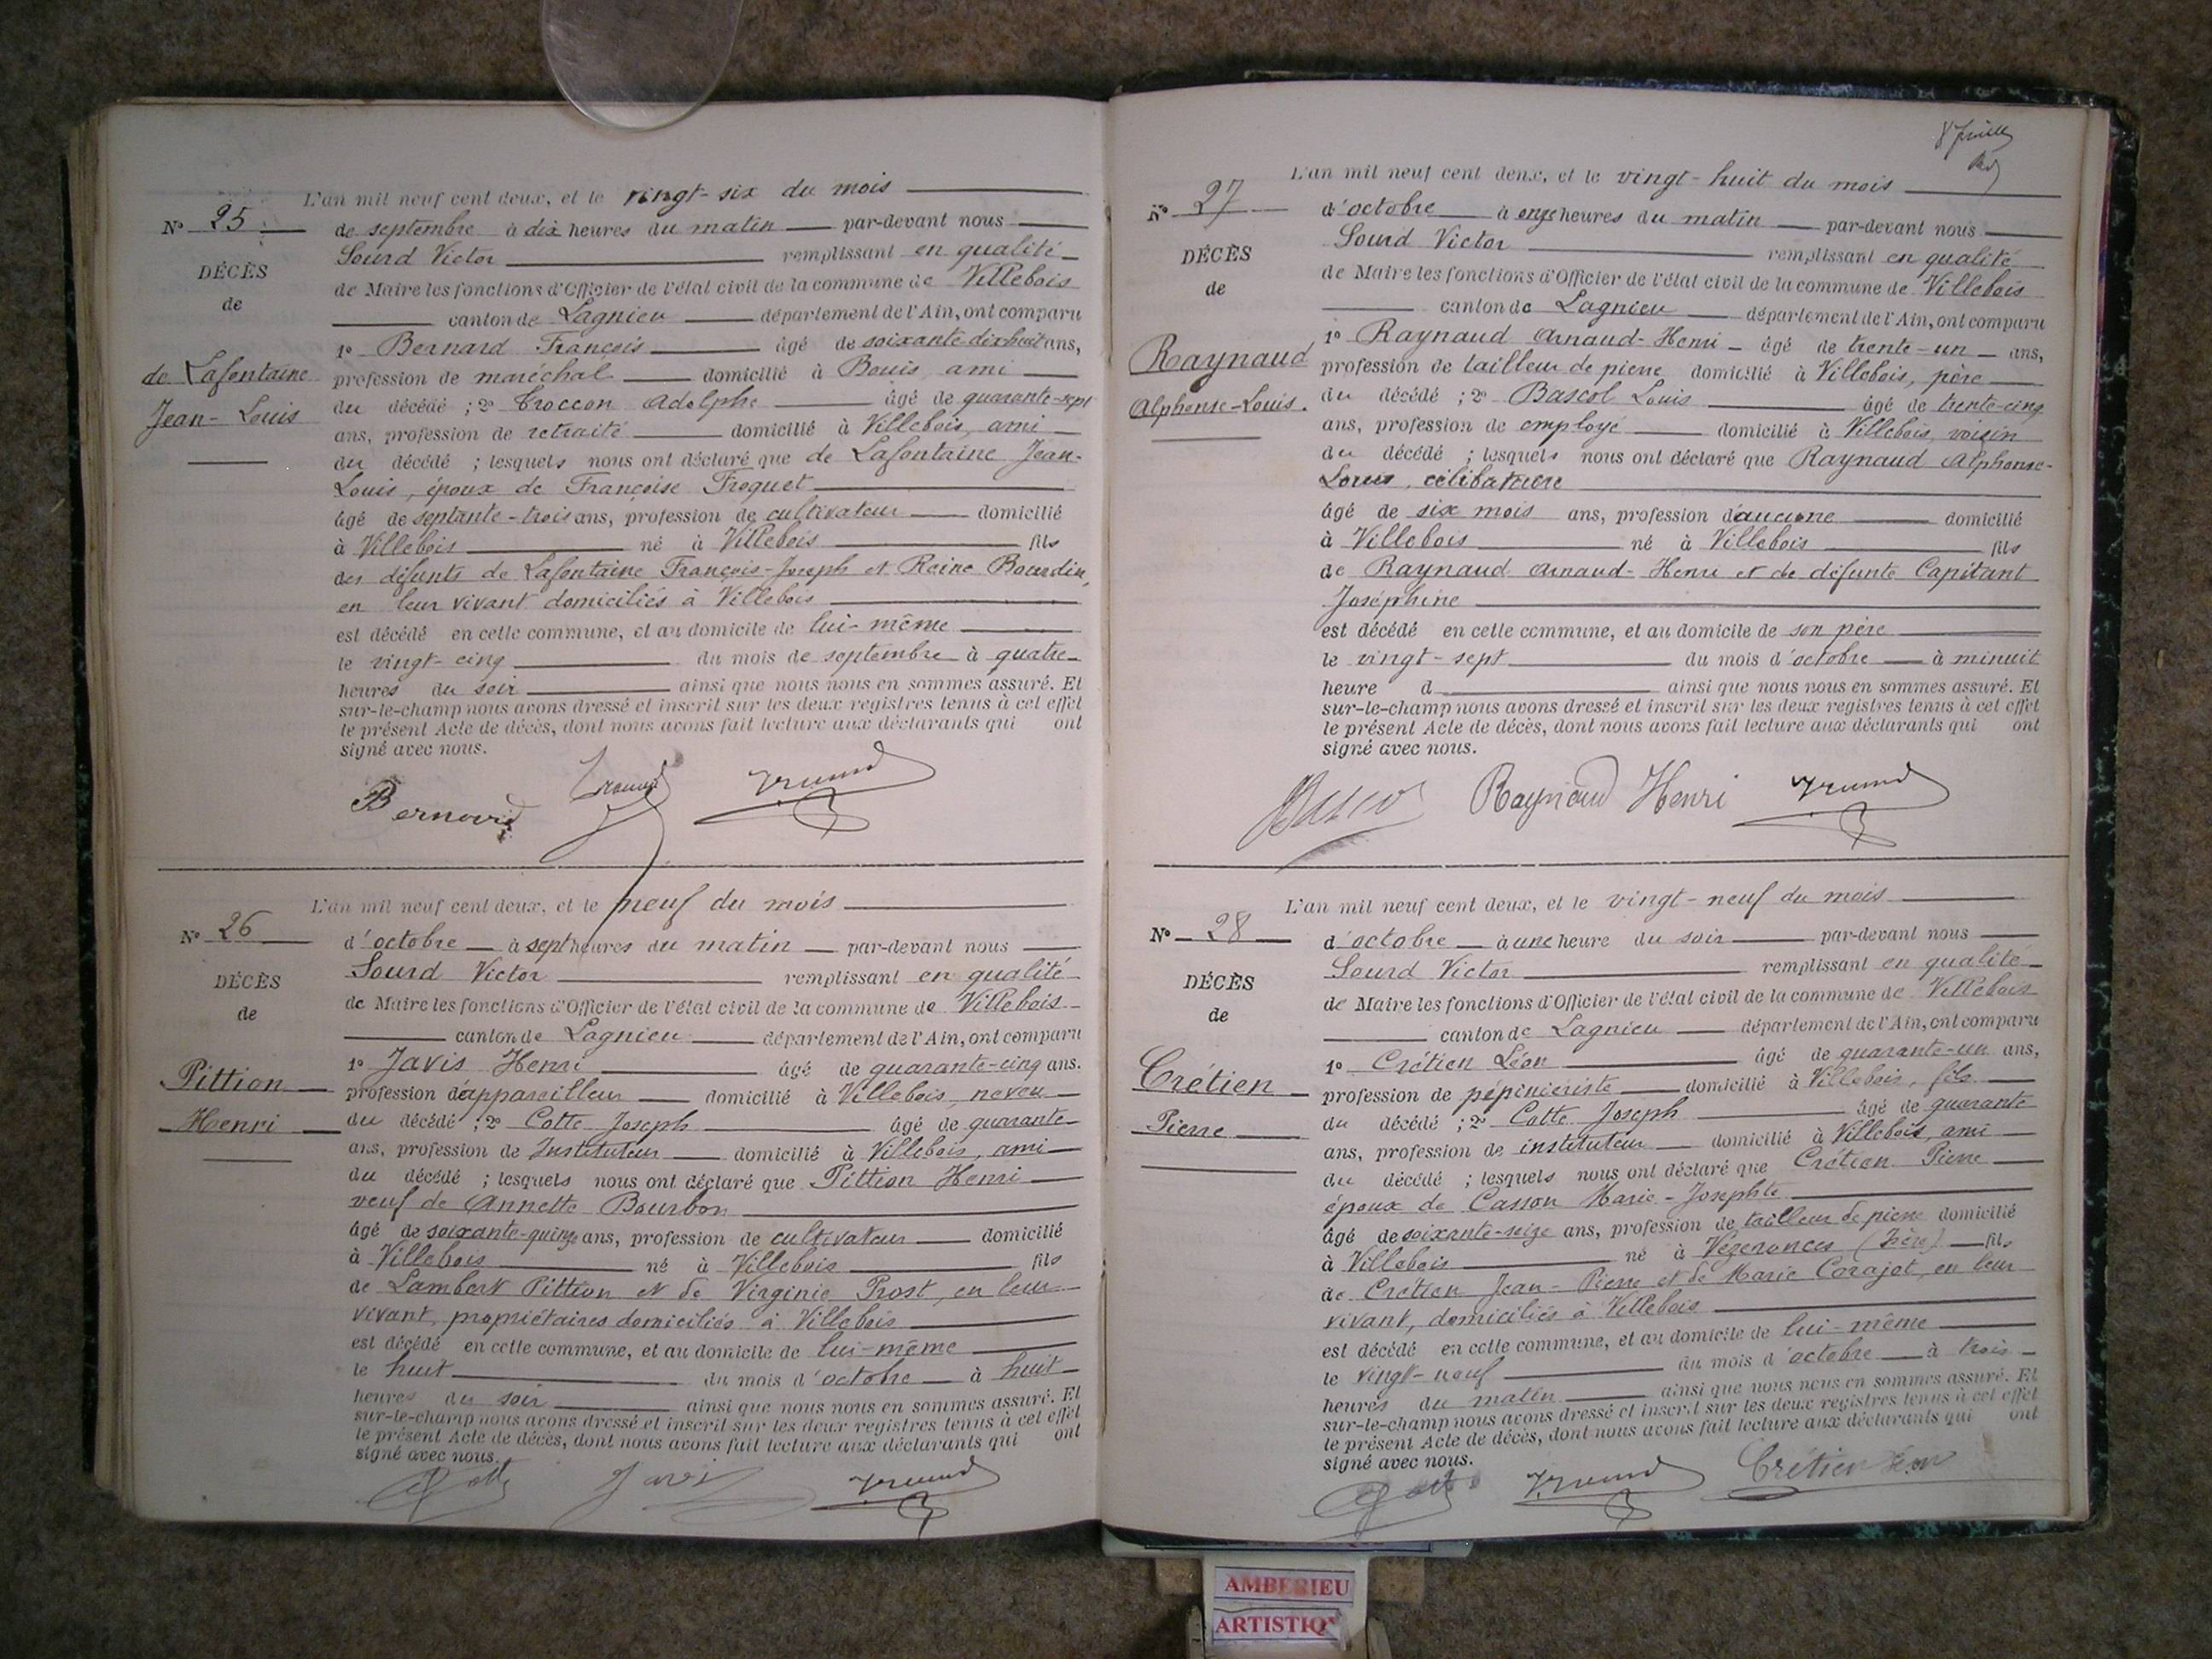 L'an mil neuf cent deux, et le vingt-six du mois
N° 25
de septembre à dix heures du matin par-devant nous
DÉCÈS
Sourd Victor remplissant en qualité
de
de Maire les fonctions d'Officier de l'état civil de la commune de Villebois
canton de Lagnieu département de l'Ain, ont comparu
1° Bernard François âgé de soixante-dix-huit ans,
de Lafontaine
profession de maréchal domicilié à Bouis, ami
Jean-Louis
du décédé ; 2° Troccon Adolphe âgé de quarante-sept
ans, profession de retraité domicilié à Villebois, ami
du décédé ; lesquels nous ont déclaré que de Lafontaine Jean-
Louis, époux de Françoise Froquet
âgé de septante-trois ans, profession de cultivateur domicilié
à Villebois né à Villebois fils
des défunts de Lafontaine François-Joseph et Reine Bourdin,
en leur vivant domiciliés à Villebois
est décédé en cette commune, et au domicile de lui-même
le vingt-cinq du mois de septembre à quatre
heures du soir ainsi que nous nous en sommes assuré. Et
sur-le-champ nous avons dressé et inscrit sur les deux registres tenus à cet effet
le présent Acte de décès, dont nous avons fait lecture aux déclarants qui ont
signé avec nous.
Bernard
L'an mil neuf cent deux, et le neuf du mois
N° 26
d'octobre à sept heures du matin par-devant nous
DÉCÈS
Sourd Victor remplissant en qualité
de
de Maire les fonctions d'Officier de l'état civil de la commune de Villebois
canton de Lagnieu département de l'Ain, ont comparu
Pittion
Henri
1° Javis Henri âgé de quarante-cinq ans.
profession d'appareilleur domicilié à Villebois, neveu
du décédé ; 2° Cotte Joseph âgé de quarante
ans, profession de Instituteur domicilié à Villebois, ami
du décédé ; lesquels nous ont déclaré que Pittion Henri
veuf de Annette Bourbon
âgé de soixante-quinze ans, profession de cultivateur domicilié
à Villebois né à Villebois fils
de Lambert Pittion et de Virginie Prost, en leur
vivant, propriétaires domiciliés à Villebois
est décédé en cette commune, et au domicile de lui-même
le huit du mois d'octobre à huit
heures du soir ainsi que nous nous en sommes assuré. Et
sur-le-champ nous avons dressé et inscrit sur les deux registres tenus à cet effet
le présent Acte de décès, dont nous avons fait lecture aux déclarants qui ont
signé avec nous.
Cotte Javis
L'an mil neuf cent deux, et le vingt-huit du mois
N° 27
d'octobre à onze heures du matin par-devant nous
DÉCÈS
Sourd Victor remplissant en qualité
de
de Maire les fonctions d'Officier de l'état civil de la commune de Villebois
canton de Lagnieu département de l'Ain, ont comparu
Raynaud
Alphonse-Louis.
1° Raynaud Arnaud-Henri âgé de trente-un ans,
profession de tailleur de pierre domicilié à Villebois, père
du décédé ; 2° Bascol Louis âgé de trente-cinq
ans, profession de employé domicilié à Villebois, voisin
du décédé ; lesquels nous ont déclaré que Raynaud Alphonse-
Louis, célibataire
âgé de six mois ans, profession d'aucune domicilié
à Villebois né à Villebois fils
de Raynaud Arnaud-Henri et de défunte Capitant
Joséphine
est décédé en cette commune, et au domicile de son père
le vingt-sept du mois d'octobre à minuit
heure d ainsi que nous nous en sommes assuré. Et
sur-le-champ nous avons dressé et inscrit sur les deux registres tenus à cet effet
le présent Acte de décès, dont nous avons fait lecture aux déclarants qui ont
signé avec nous.
Raynaud Henri
L'an mil neuf cent deux, et le vingt-neuf du mois
N° 28
d'octobre à une heure du soir par-devant nous
DÉCÈS
Sourd Victor remplissant en qualité
de
de Maire les fonctions d'Officier de l'état civil de la commune de Villebois
canton de Lagnieu département de l'Ain, ont comparu
Crétien
Pierre
1° Crétien Léon âgé de quarante-un ans,
profession de pépinieriste domicilié à Villebois, fils
du décédé ; 2° Cotte Joseph âgé de quarante
ans, profession de instituteur domicilié à Villebois, ami
du décédé ; lesquels nous ont déclaré que Crétien Pierre
époux de Casson Marie-Josephte
âgé de soixante-seize ans, profession de tailleur de pierre domicilié
à Villebois né à Vézeronces (Isère) fils
de Crétien Jean-Pierre et de Marie Carajat, en leur
vivant, domiciliés à Villebois
est décédé en cette commune, et au domicile de lui-même
le vingt-neuf du mois d'octobre à trois
heures du matin ainsi que nous nous en sommes assuré. Et
sur-le-champ nous avons dressé et inscrit sur les deux registres tenus à cet effet
le présent Acte de décès, dont nous avons fait lecture aux déclarants qui ont
signé avec nous.
Cotte Crétien Léon
AMBERIEU
ARTISTIQ